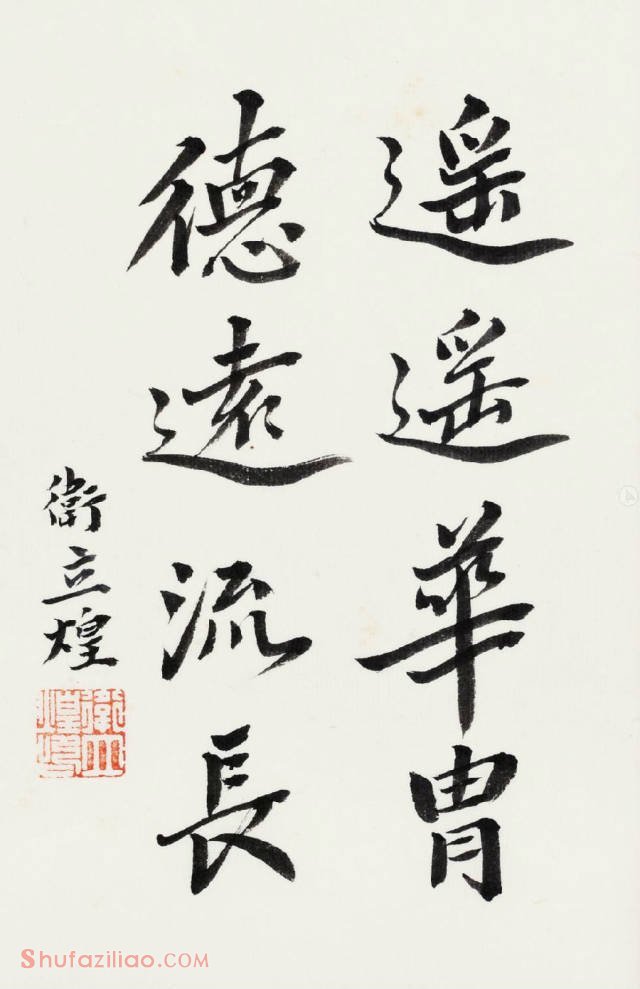 遥遥華胄
德遠流長
衛立煌
衛立煌印
Shufaziliao.COM